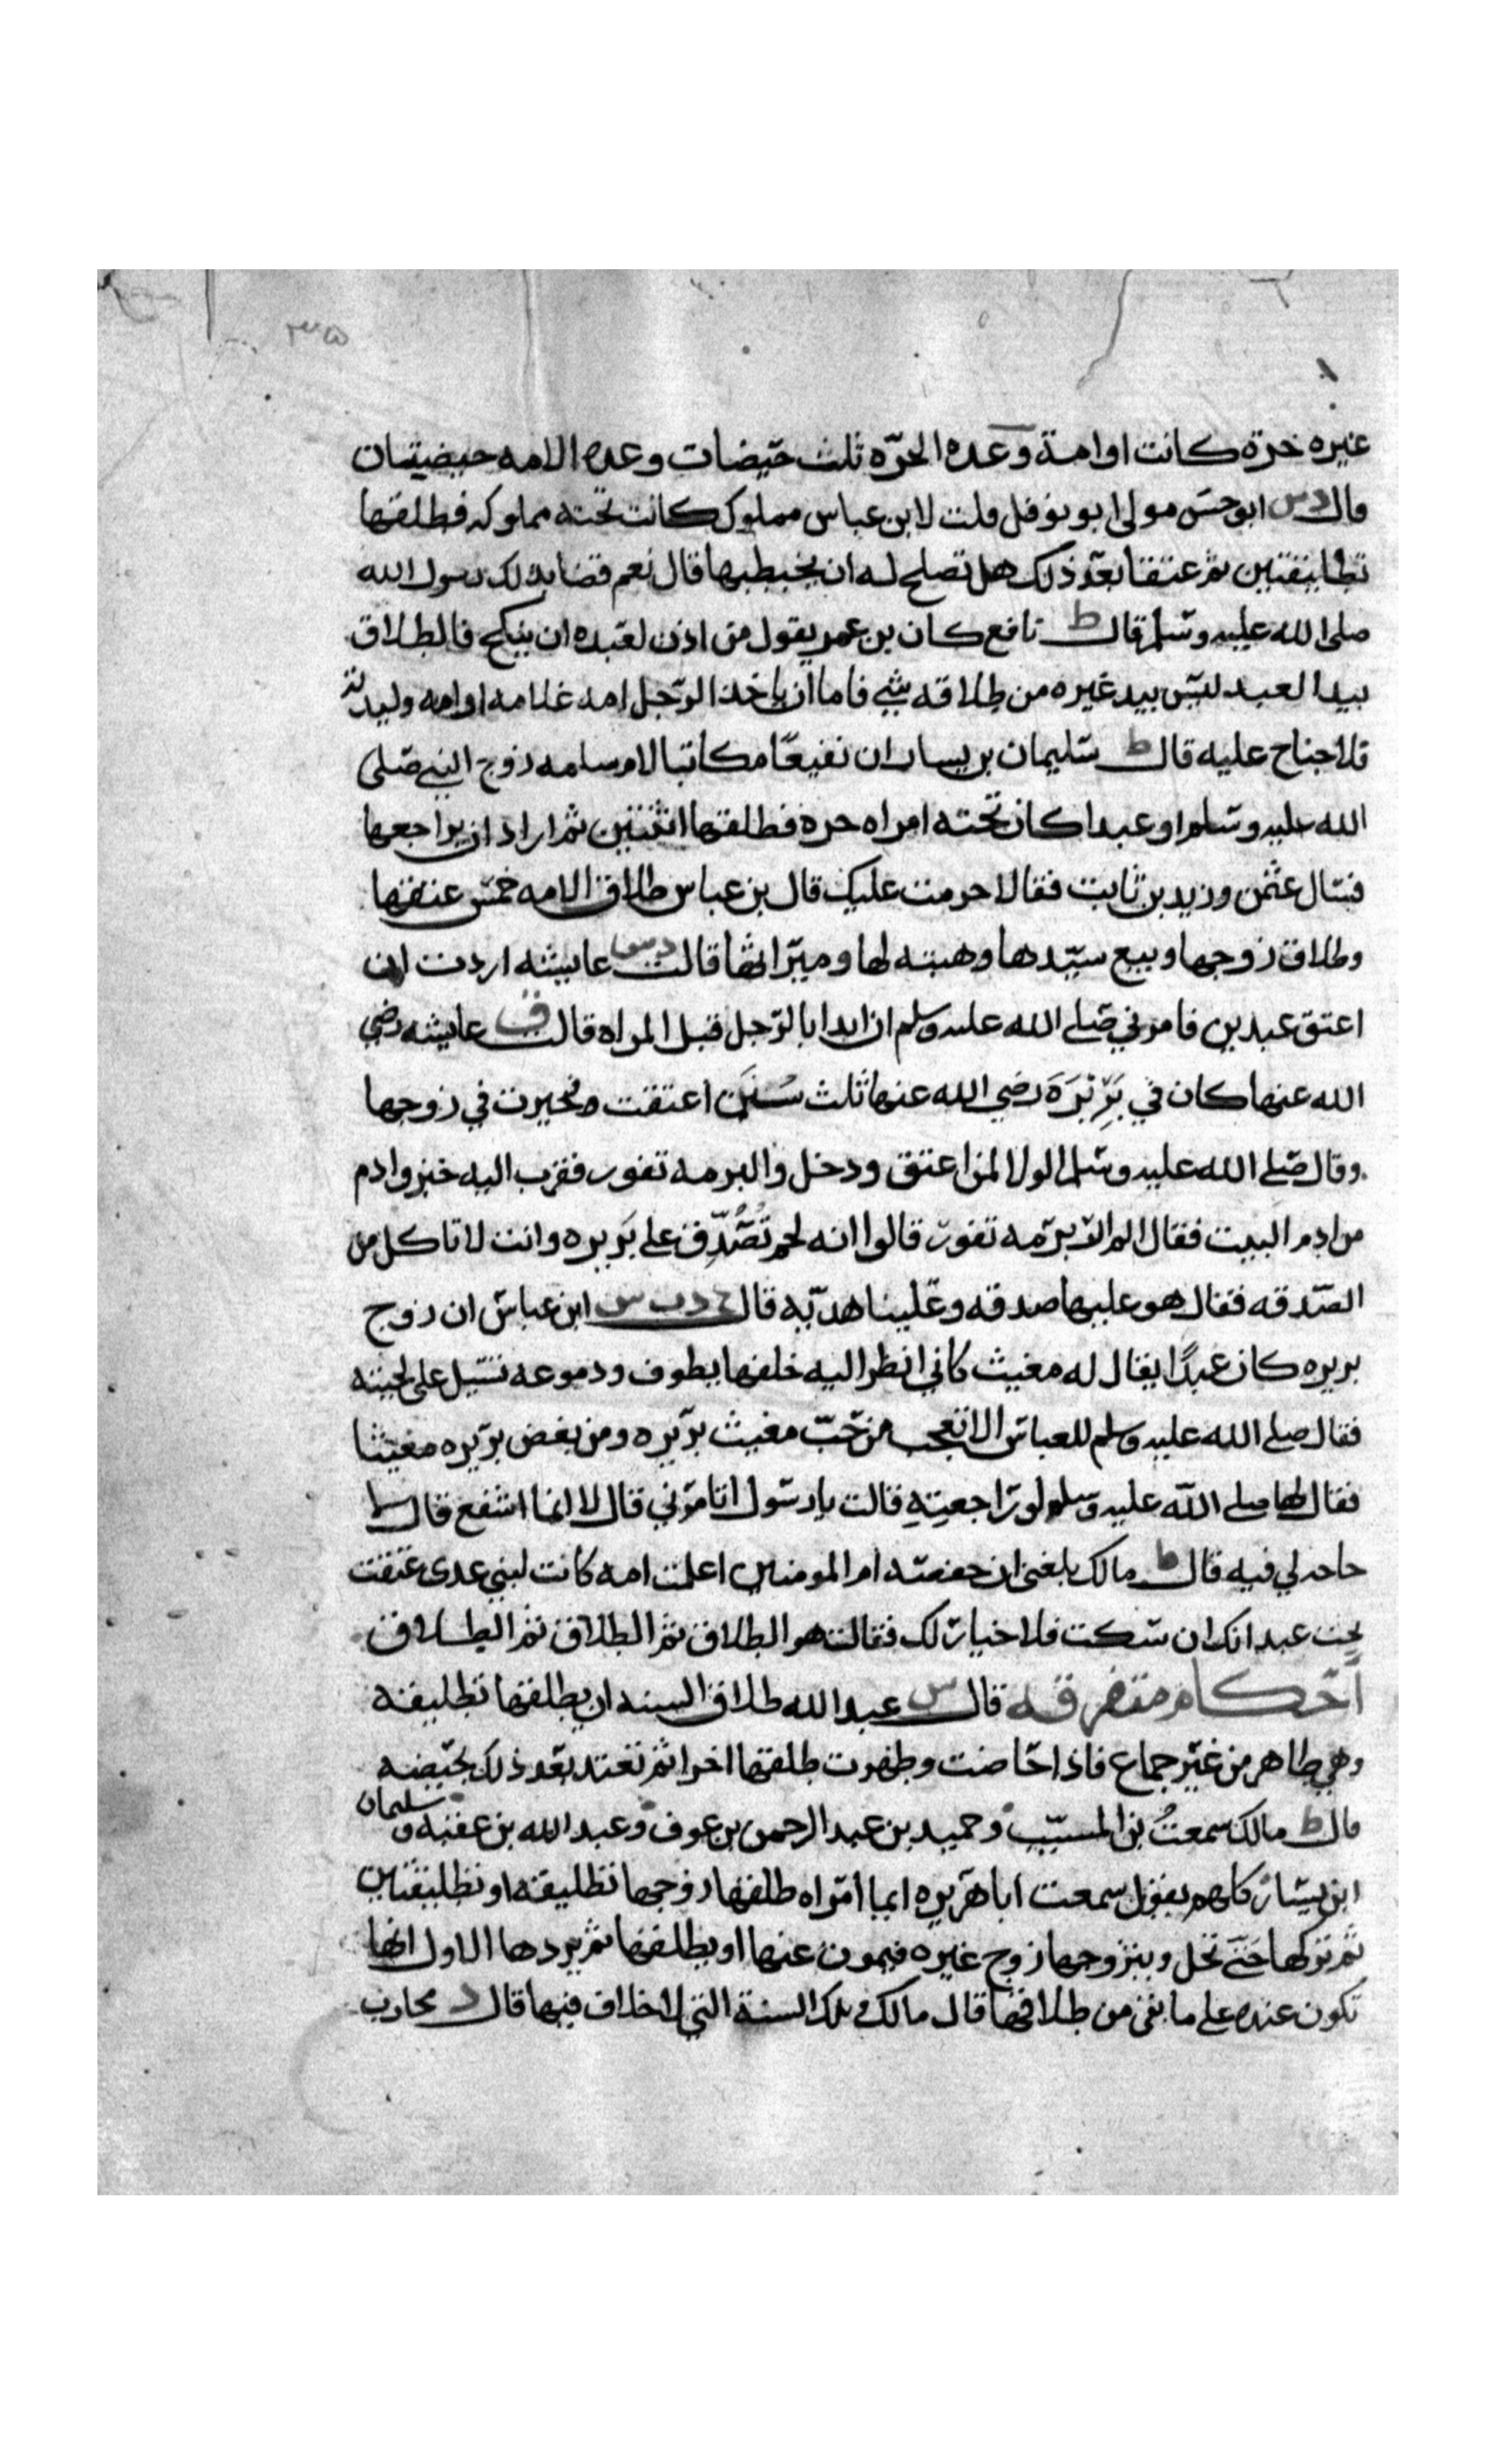 ٣٣٥
غيره حرة كانت او امة وعده الحرّه ثلث حيضات وعده الامه حيضيتان
قال د س ابو حسن مولى ابو نوفل قلت لابن عباس مملوك كانت تحته مملوكه فطلقها
تطليقتين ثم عتقا بعد ذلك هل تصلح له ان يخطبها قال نعم قضا بذلك رسول الله
صلى الله عليه وسلم قال ط نافع كان بن عمر يقول من اذن لعبده ان ينكح فالطلاق
بيد العبد ليس بيد غيره من طلاقه شي فاما ان ياخذ الرجل امه غلامه او امه وليدته
فلا جناح عليه قال ط سليمان بن يسار ان نفيعًا مكاتبا لام سلمه زوج النبي صلى
الله عليه وسلم او عبدا كان تحته امراه حره فطلقها اثنتين ثم اراد ان يراجعها
فسال عثمن وزيد بن ثابت فقالا حرمت عليك قال بن عباس طلاق الامه خمس عتقها
وطلاق زوجها وبيع سيّدها وهبته لها وميراثها قالت د س عايشه اردت ان
اعتق عبدين فامرني صلى الله عليه وسلم ان ابدا بالرّجل قبل المراه قالت ق عايشه رضي
الله عنها كان في بَرِيْرَةَ رضي الله عنها ثلث سُنَن اعتقت فخيرت في زوجها
وقال صلى الله عليه وسلم الولا لمن اعتق ودخل والبرمه تفور فقرب اليه خبز وادم
من ادم البيت فقال الم ار برمه تفور قالوا انه لحم تُصُدِّق على بريره وانت لا تاكل من
الصدقه فقال هو عليها صدقه وعلينا هديه قال خ د ت س ابن عباس ان زوج
بريره كان عبدًا يقال له مغيث كاني انظر اليه خلفها يطوف ودموعه تسيل على لحيته
فقال صلى الله عليه وسلم للعباس الا تعجب من حبّ مغيث بريره ومن بغض بريره مغيثا
فقال لها صلى الله عليه وسلم لو راجعتِهِ قالت يا رسول اتامرني قال لا انما اشفع قالت
حاجه لي فيه قال ط مالك بلغني ان حفصه ام المومنين اعلمت امه كانت لبني عدى عتقت
تحت عبد انك ان سكت فلا خيار لك فقالت هو الطلاق ثم الطلاق ثم الطلاق
احكام متفرقه قال س عبد الله طلاق السنه ان يطلقها تطليقه
وهي طاهر من غير جماع فاذا حاضت وطهرت طلقها اخرا ثم تعتد بعد ذلك بحيضه
قال ط مالك سمعتُ بن المسيّب وحميد بن عبد الرحمن بن عوف وعبد الله بن عقبه وسليمان
ابن يسار كلهم يقول سمعت ابا هريره ايما امراه طلقها زوجها تطليقه او تطليقتين
ثم تركها حتى تحل ويتزوجها زوج غيره فيموت عنها او يطلقها ثم يردها الاول انها
تكون عنده على ما بقي من طلاقها قال مالك وتلك السنة التي لا خلاف فيها قال د محارب